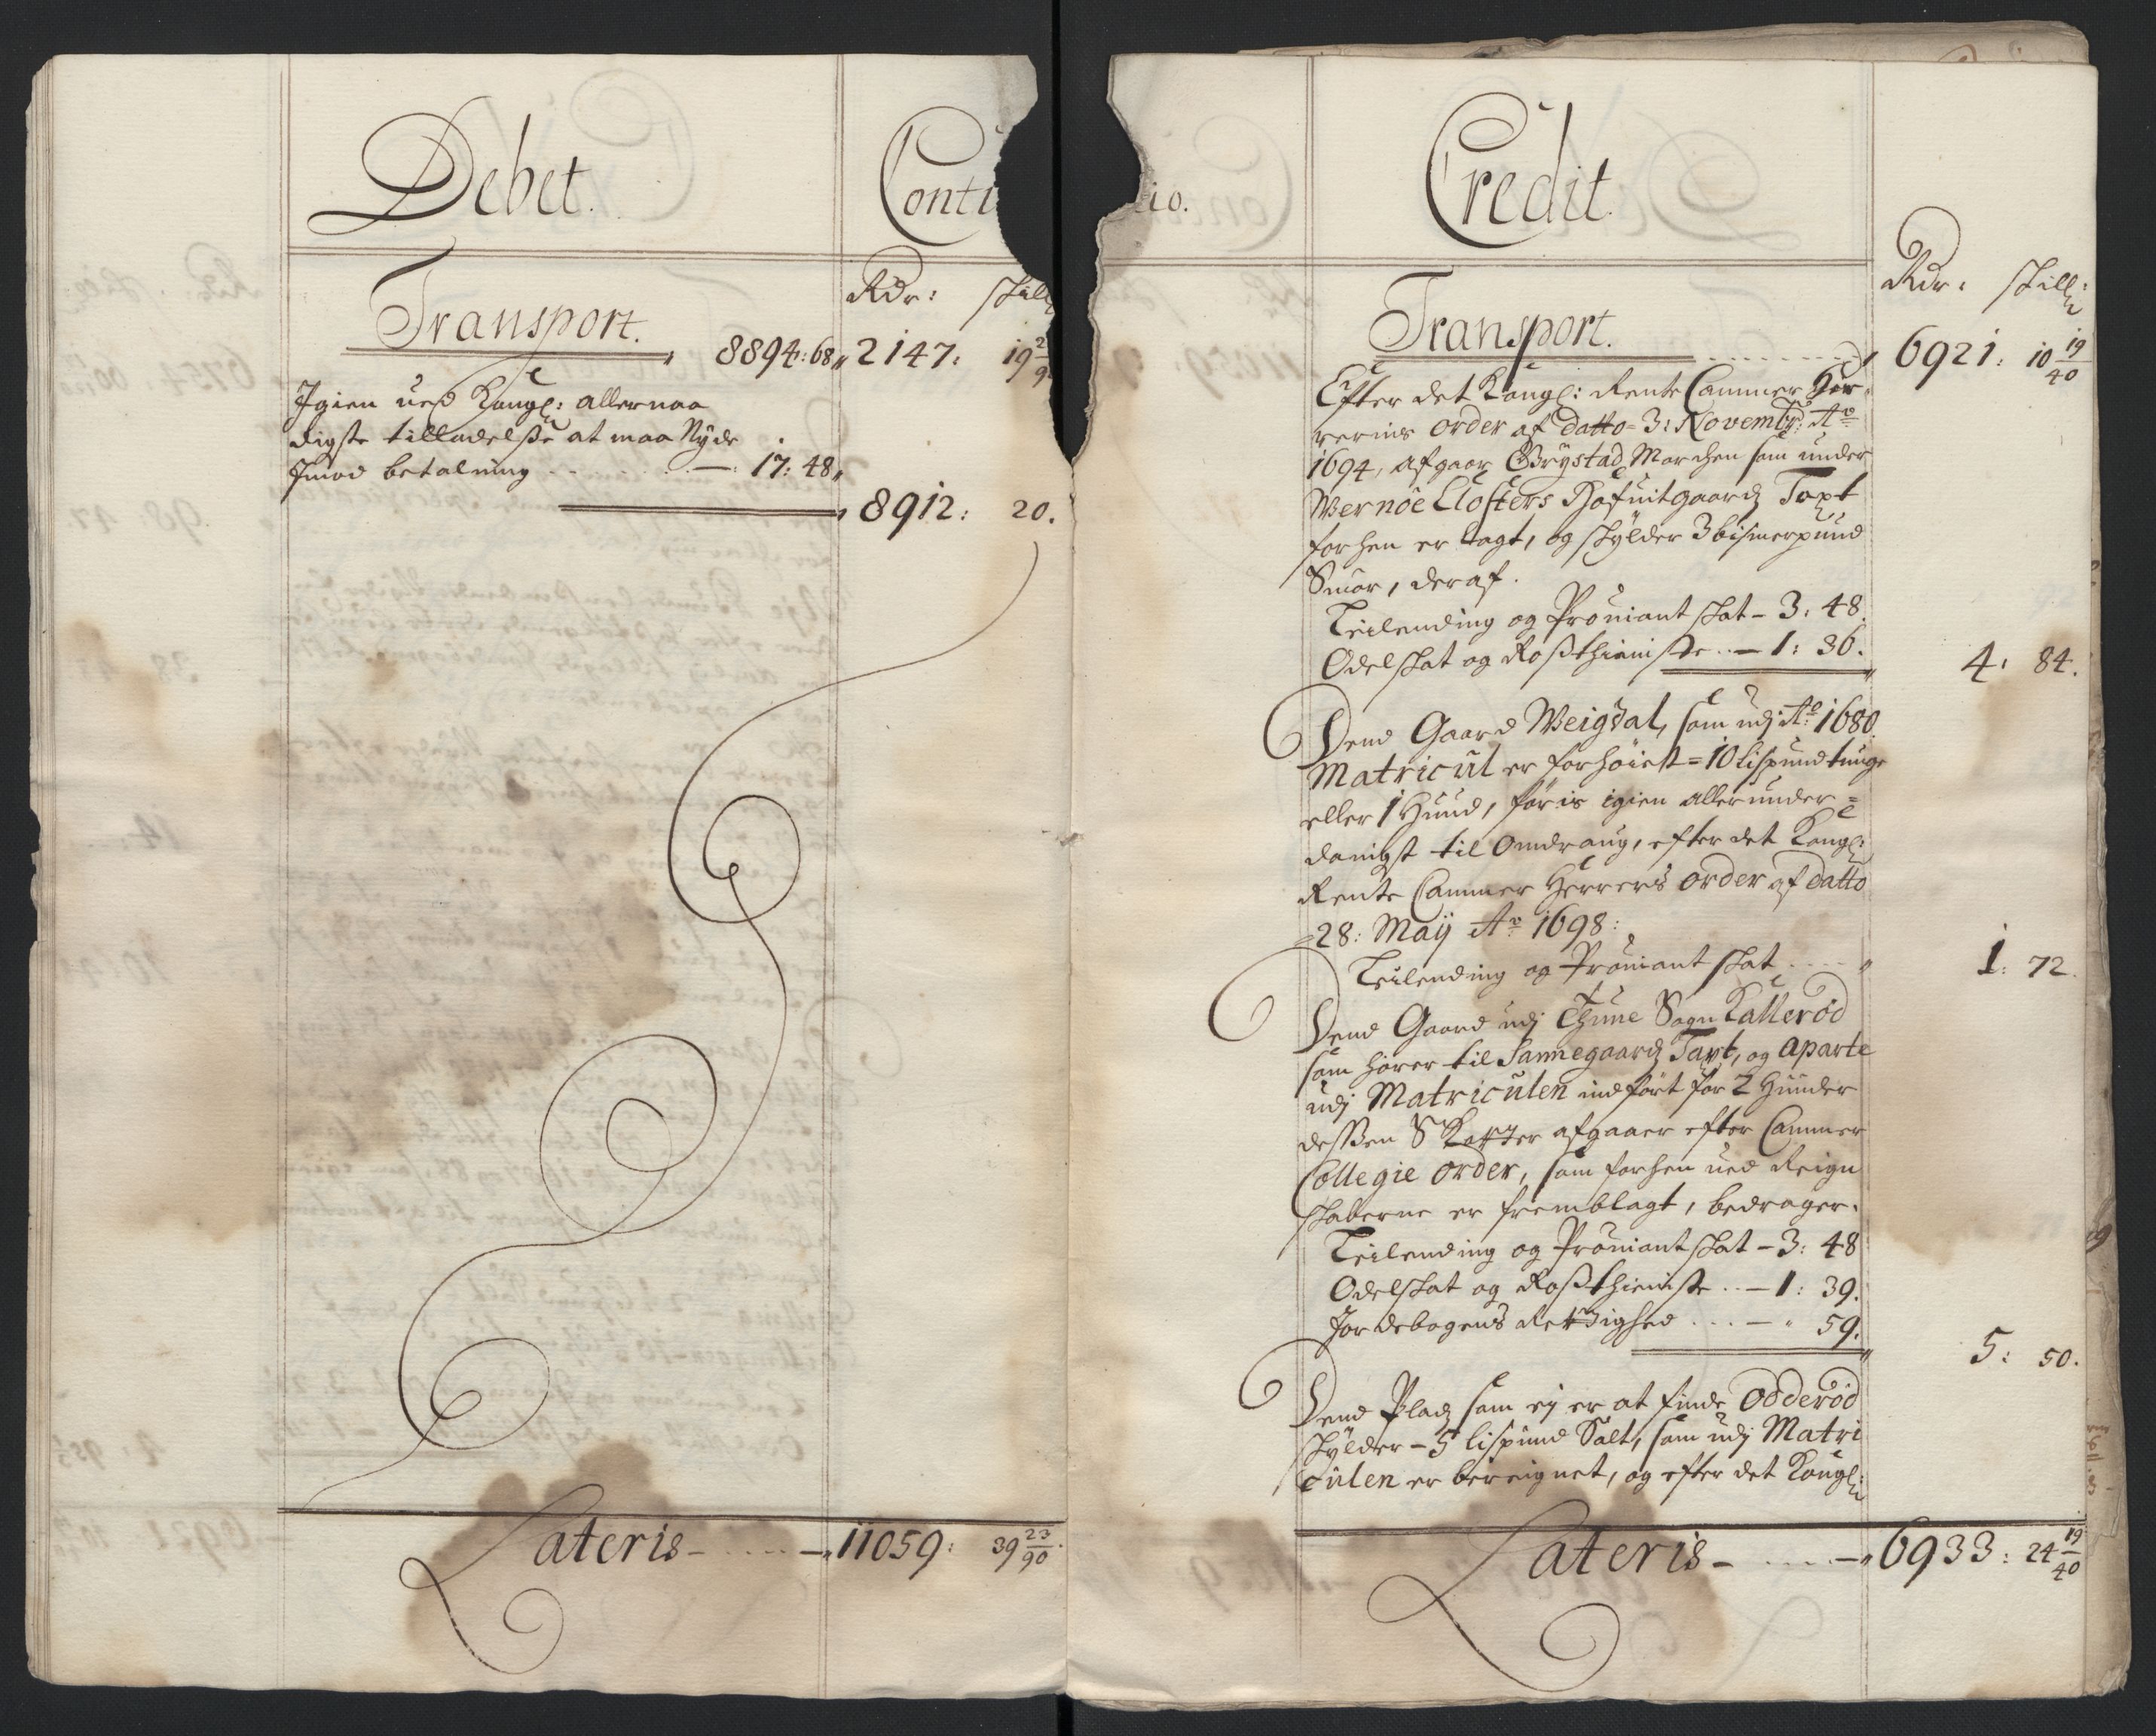 Debet.
Conti
Rdr: skill
Transport. 8894:68 2147: 19
Igien ued Kongl: allernaa
digste tilladelsse at maa Nyde
Imod betalning - - - — 17: 48
8912: 20.
Lateris - - - - — 11059: 39 23/90.
io.
Credit.
Rdr: skill:
Transport. - - - - 6921: 10 19/40
Efter det Kongl: Rente Cammer Her
rerens order af datto 3: Novembr: Ao
1694, afgaar Brÿstad Marchen som under
Wernöe Closters Hofuitgaardz Taxt
forhen er lagt, og skÿlder 3 bismerpund
Smör, deraf.
Leilending og Prouiant skat - 3: 48.
Odelskat og Rossthieniste - - — 1: 36.
4: 84.
Dend Gaard Weigdal, som udj Ao 1680.
Matricul er forhöiest = 10 Lispund tunge
eller 1 Huud, föris igien allerunder=
danigst til Omdraug, efter det Kongl:
Rente Cammer Herrers order af datto
28: Maÿ Ao 1698:
Leilending og Prouiant skat - - - 1: 72.
Dend Gaard udj Thune Sogn Kalleröd
som hörer til Sannegaardz Taxt, og aparte
udj Matriculen indfört for 2 Huuder
dessen Skatter afgaaer efter Cammer
Collegie order, som forhen ued Reign
skaberne er fremblagt, bedrager.
Leilending og Prouiant skat - 3: 48
Odelskat og Rossthieniste - - — 1: 39.
Jordebogens Rettighed - - - — " 59.
5: 50.
Dend Pladz som eÿ er at finde Odderöd
skÿlder - 5 Lispund Salt, som udj Matri
culen er bereignet, og efter det Kongl:
Lateris - - - - — 6933: 24 19/40